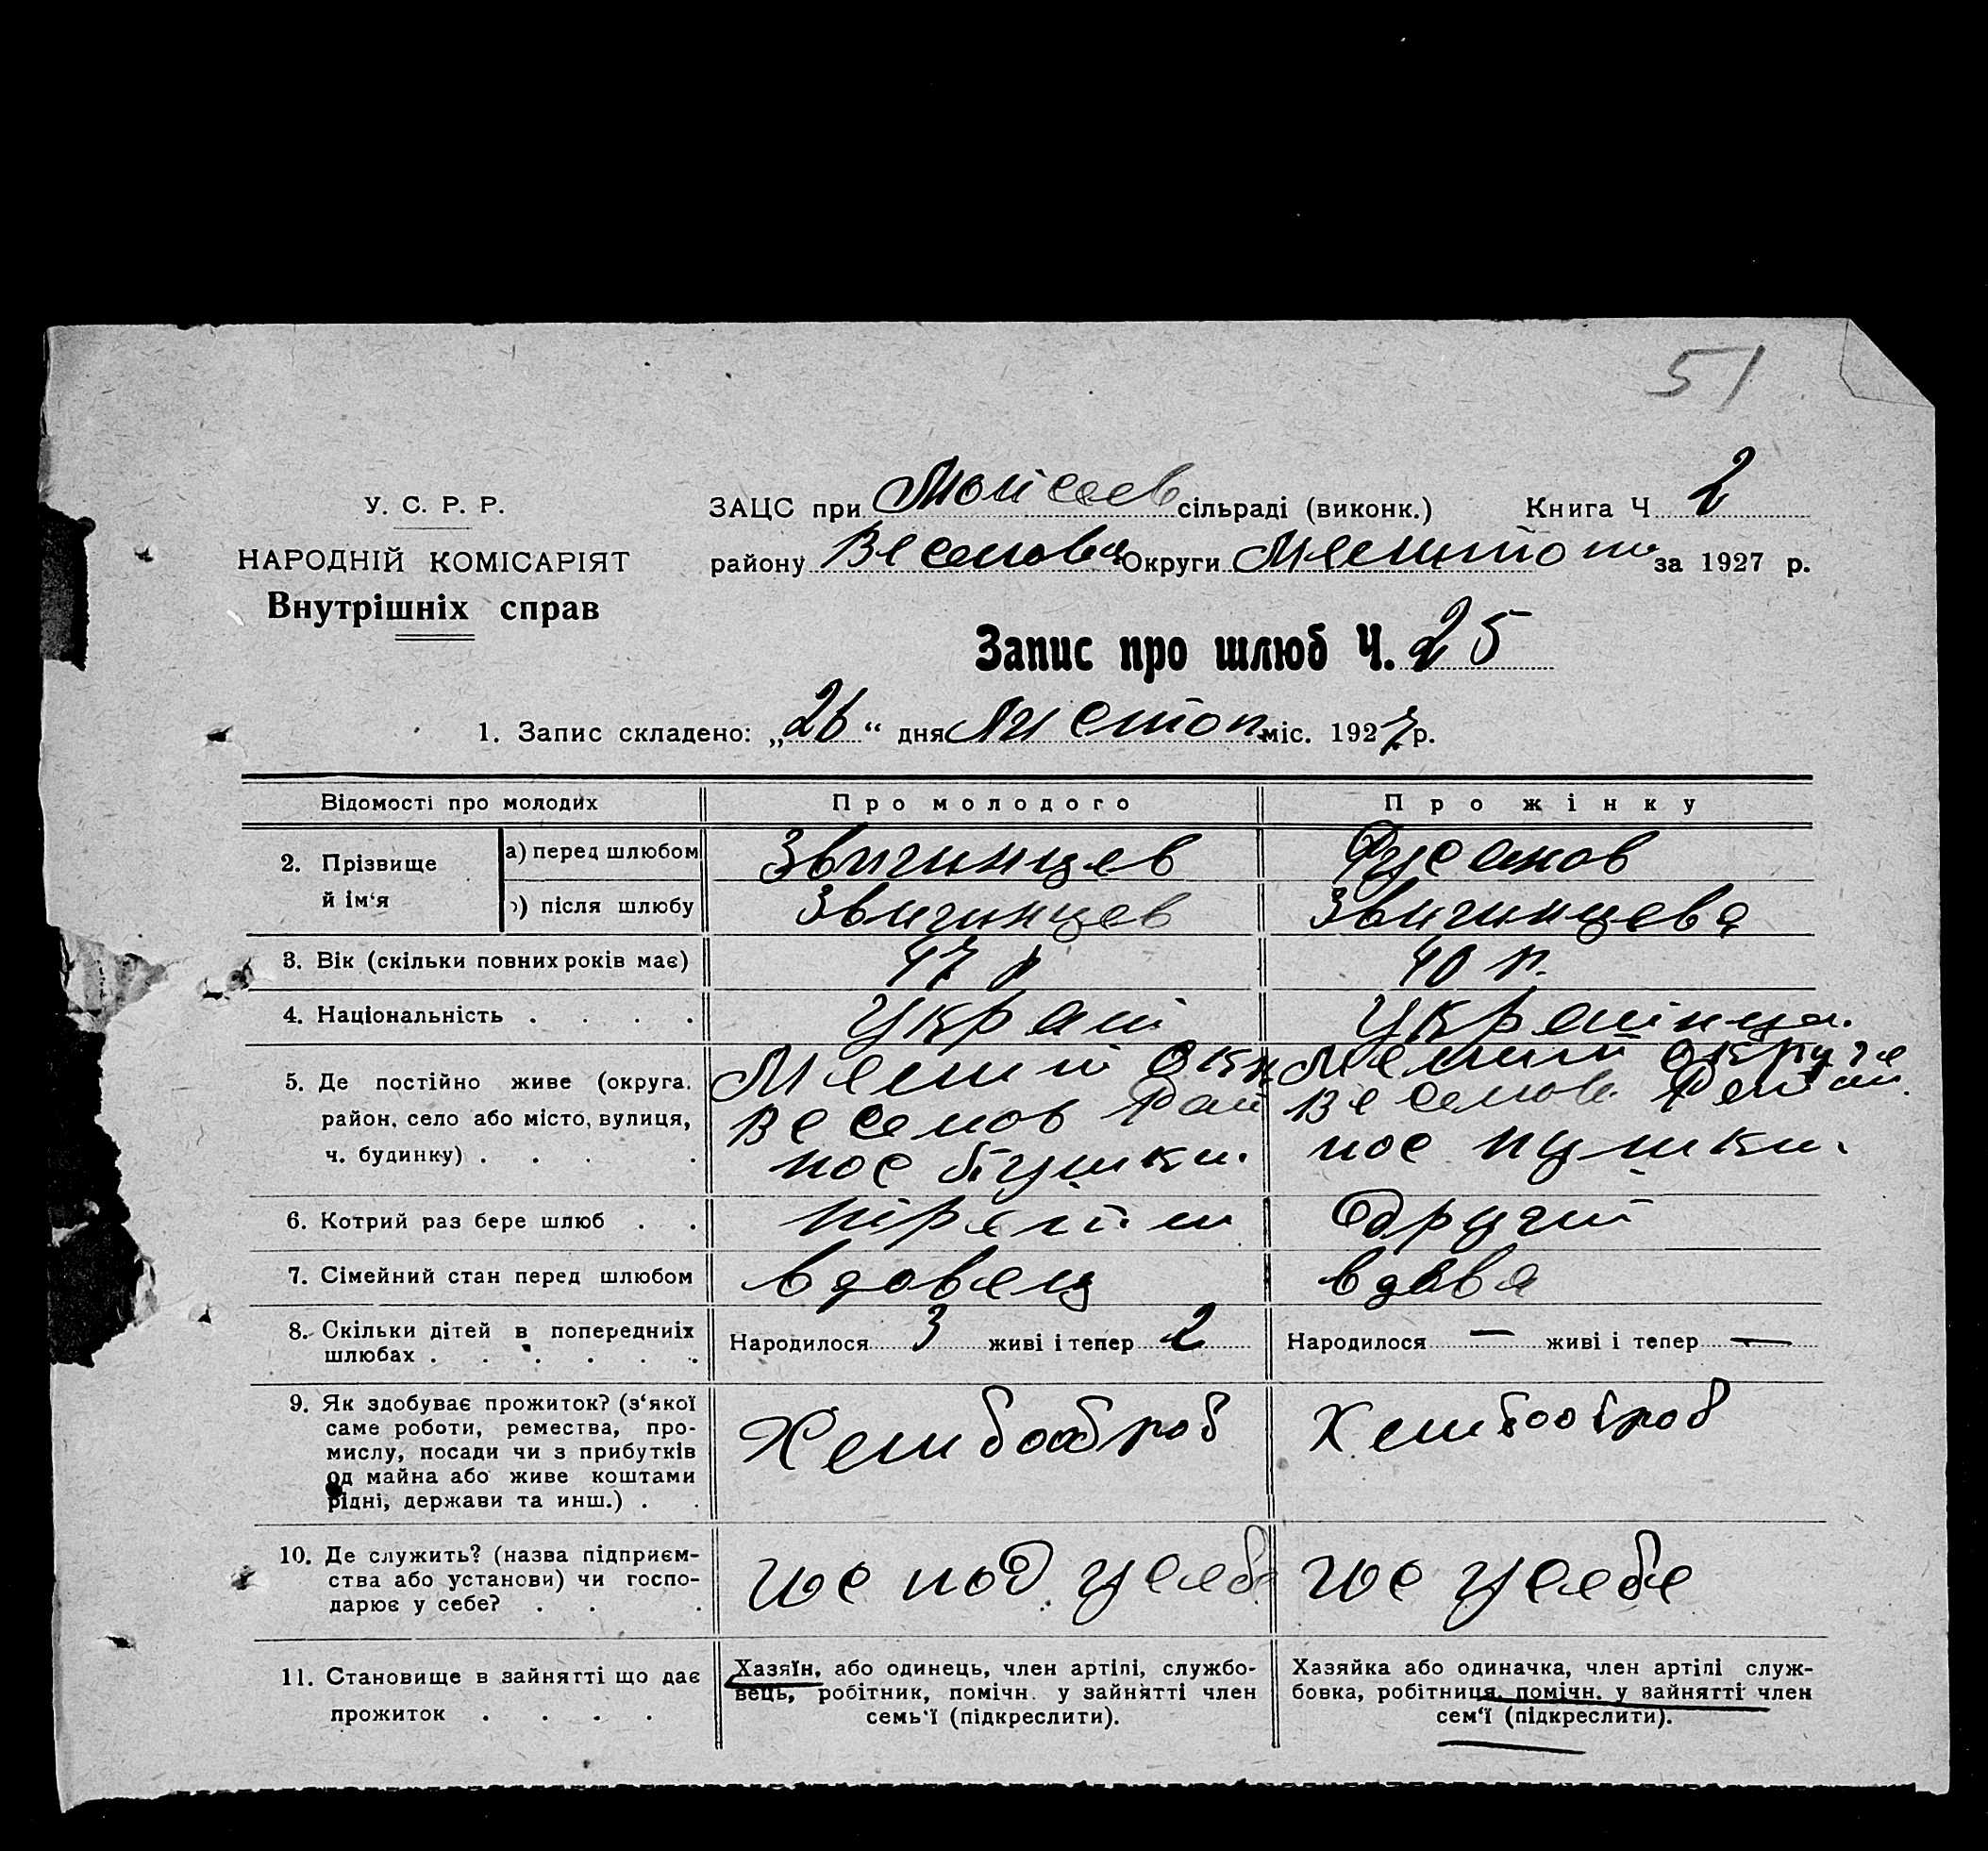 51
У. С. Р. Р.
НАРОДНІЙ КОМІСАРІЯТ
Внутрішніх справ
ЗАЦС при Моисеев сільраді (виконк.) Книга Ч 2
району Веселовс Округи Мелитоп за 1927 р.
Запис про шлюб Ч. 25
1. Запис складено: „26“ дня Листоп міс. 1927 р.
Відомості про молодих Про молодого Про жінку
2. Прізвище й ім‘я
а) перед шлюбом Звигинцев Фусаков
б) після шлюбу Звигинцев Звигинцева
3. Вік (скільки повних років має) 47 р 40 р.
4. Національність . . . . Украї Українца.
5. Де постійно живе (округа, Мелит окр Мелит округа
район, село або місто, вулиця, Веселов Рай Веселов.
ч. будинку) . . . . пос пос пушки.
6. Котрий раз бере шлюб . . другий
7. Сімейний стан перед шлюбом вдовец вдова
8. Скільки дітей в попередниіх Народилося 3 живі і тепер 2 Народилося — живі і тепер —
шлюбах . . . . . .
9. Як здобуває прожиток? (з‘якої
саме роботи, ремества, про-
мислу, посади чи з прибутків
од майна або живе коштами
рідні, держави та инш.) . .
Хлибооброб Хлибооброб
10. Де служить? (назва підприєм-
ства або установи) чи госпо-
дарює у себе? . . .
усебе
11. Становище в зайнятті що дає
прожиток . . . .
Хазяїн, або одинець, член артілі, службо-
вець, робітник, помічн. у зайнятті член
семь‘ї (підкреслити).
Хазяйка або одиначка, член артілі служ-
бовка, робітниця, помічн. у зайнятті член
сем‘ї (підкреслити).